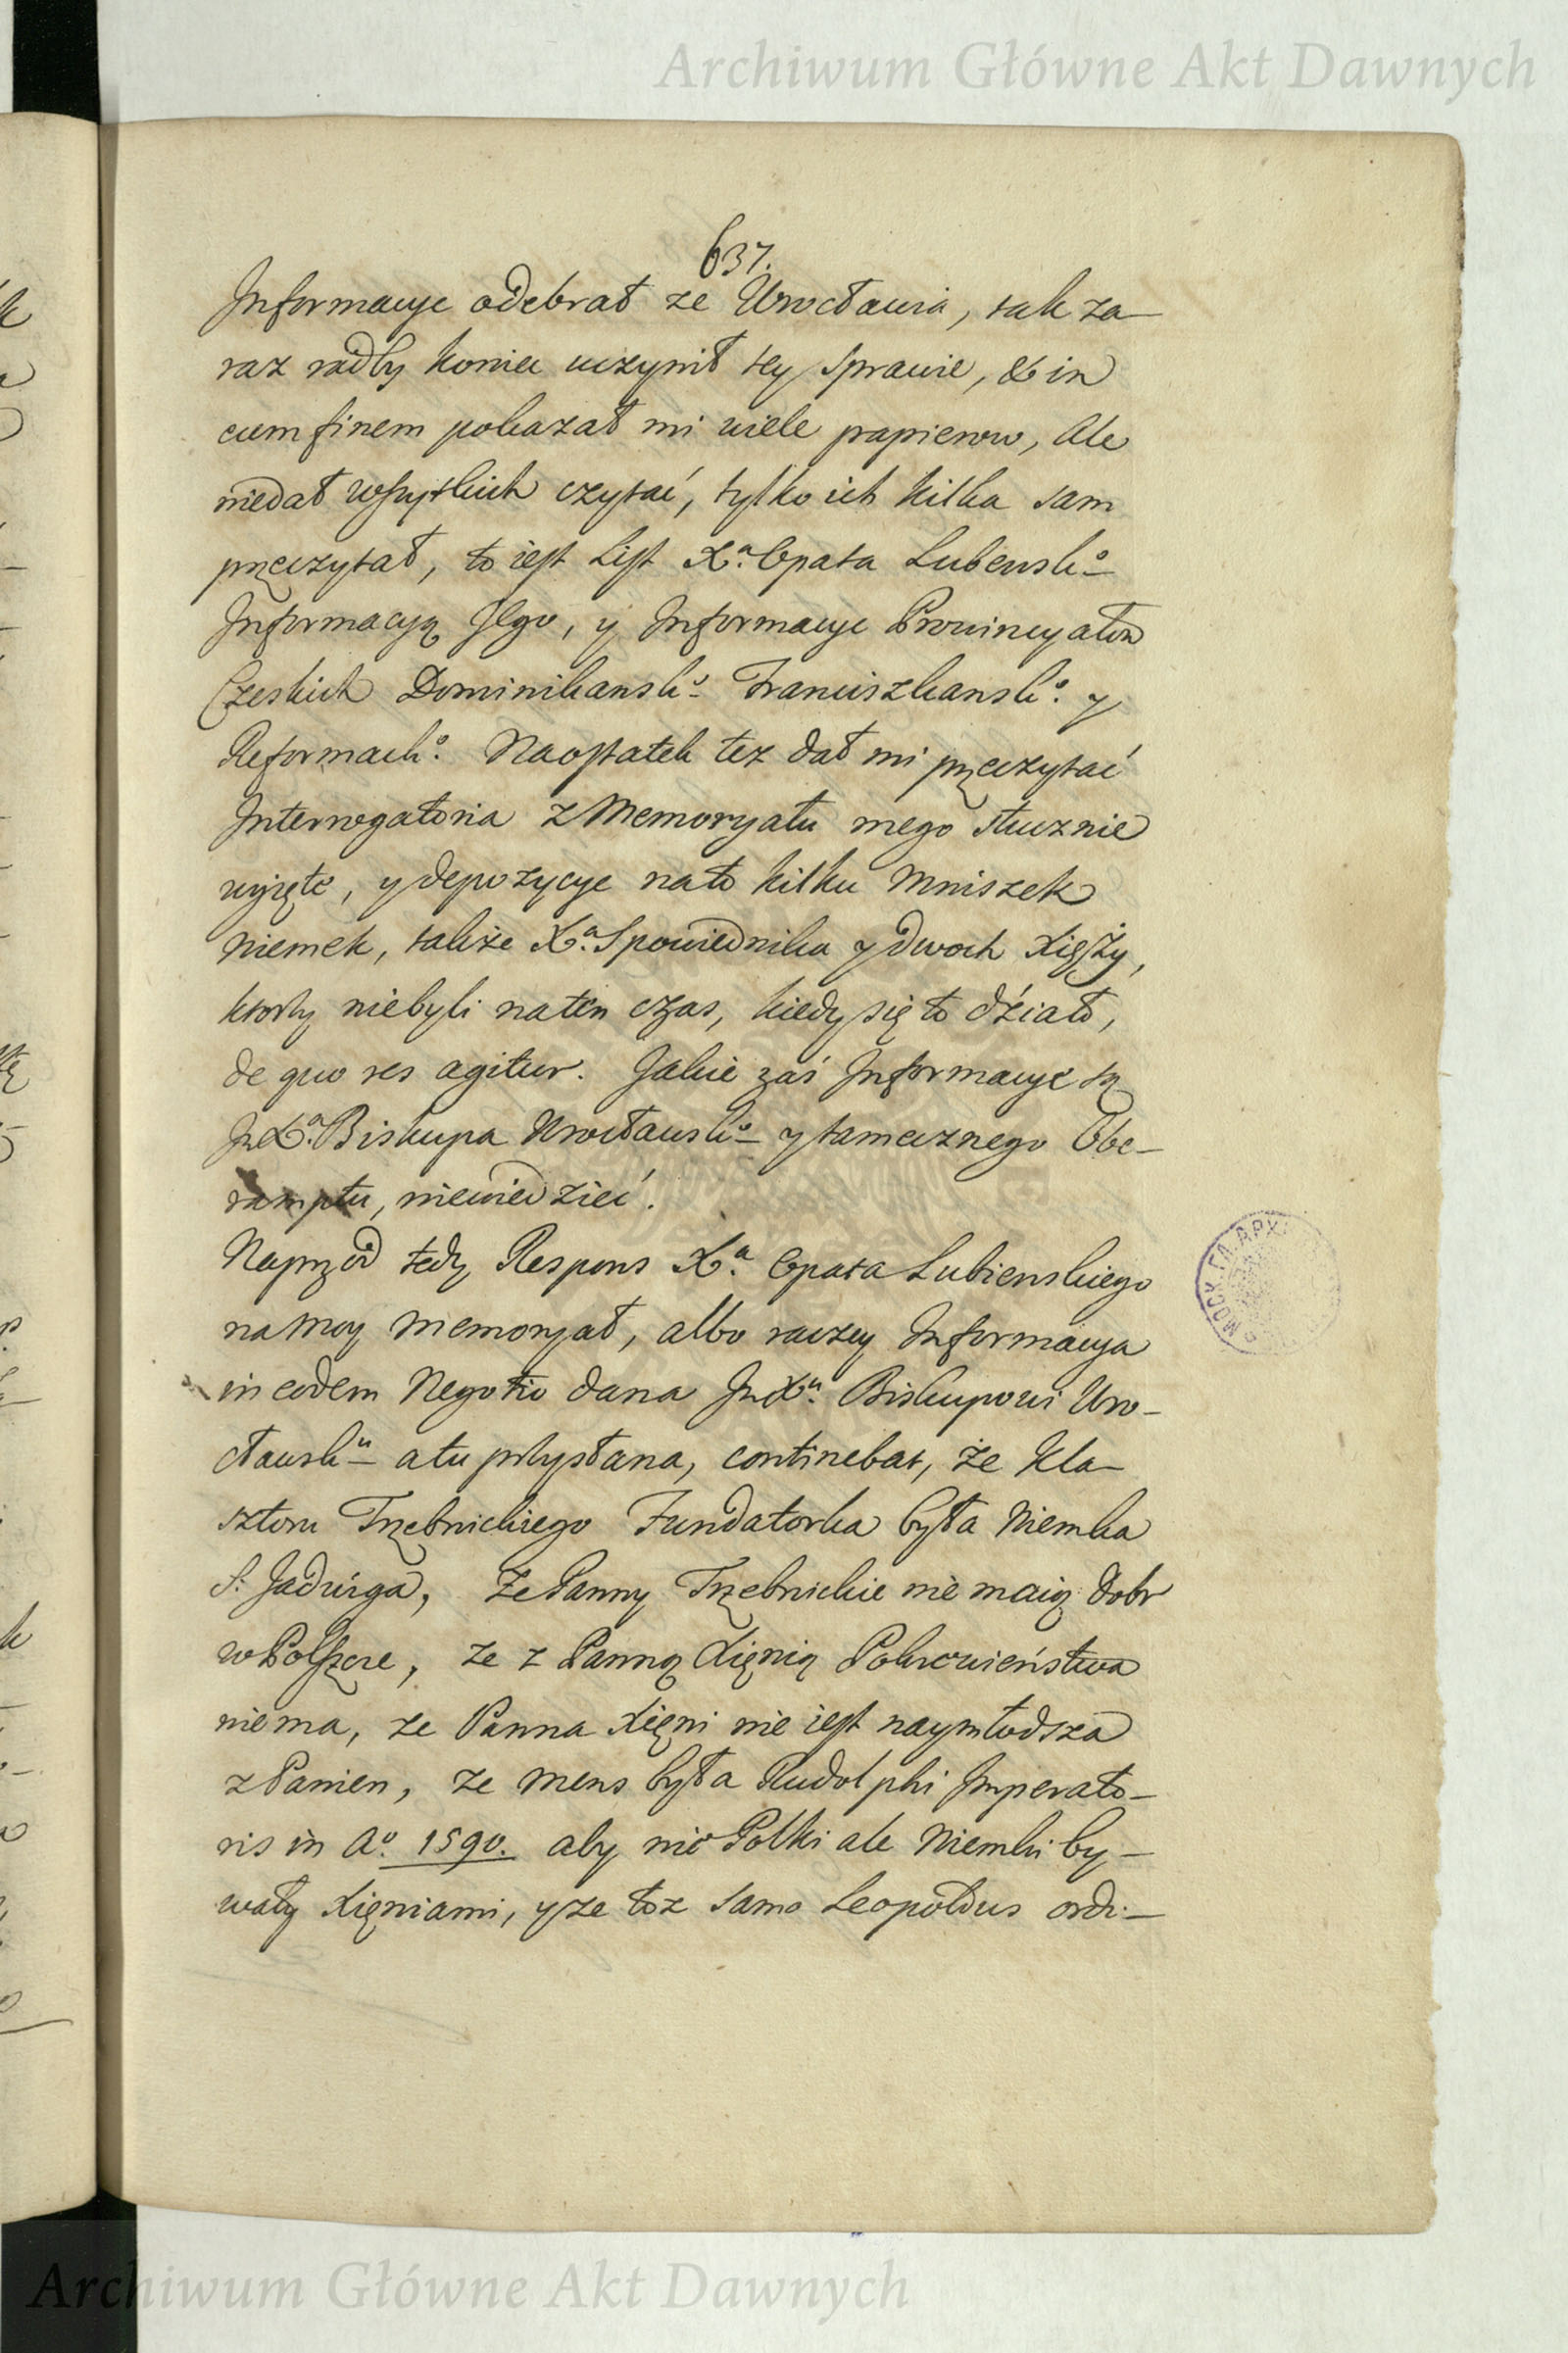 Archiwum Główne Akt Dawnych
637.
Informacye odebrał ze Wrocławia, tak za-
raz radby koniec uczynił tey sprawie, & in
eum finem pokazał mi wiele papierow, Ale
niedał wszytkich czytać, tylko ich kilka sam
przeczytał, to iest List Xa. Opata Lubensko
Informacyą Jego, y Informacye Prowincyałow
Czeskich Dominikansko. Franciszkansko. y
Reformacko. Naostatek tez dał mi przeczytać
Interrogatoria z Memoryału mego słucznie
wyięte, y depozycye nato kilku Mniszek
Niemek, także Xa. Spowiednika y dwoch Xięży,
ktorzy niebyli naten czas, kiedy się to działo,
de quo res agitur. Jakie zaś Informacye są
JmXa. Biskupa Wrocławsko y tamecznego Obe-
ramptu, niewiedzieć.
Naprzod tedy Respons Xa. Opata Lubienskiego
na moy memoryał, albo raczey Informacya
in eodem Negotio dana JmXu. Biskupowi Wro-
cławsku a tu przysłana, continebat, że Kla-
sztoru Trzebnickiego Fundatorka była Niemka
S. Jadwiga, Ze Panny Trzebnickie nie maią dobr
w Polszcze, ze z Panną Xięnią Pokrewieństwa
niema, ze Panna Xięni nie iest naymłodsza
z Panien, ze mens była Rudolphi Imperato-
ris in Ao. 1590. aby nie Polki ale Niemki by-
wały Xięniami, y ze toz samo Leopoldus ordi-
Archiwum Główne Akt Dawnych